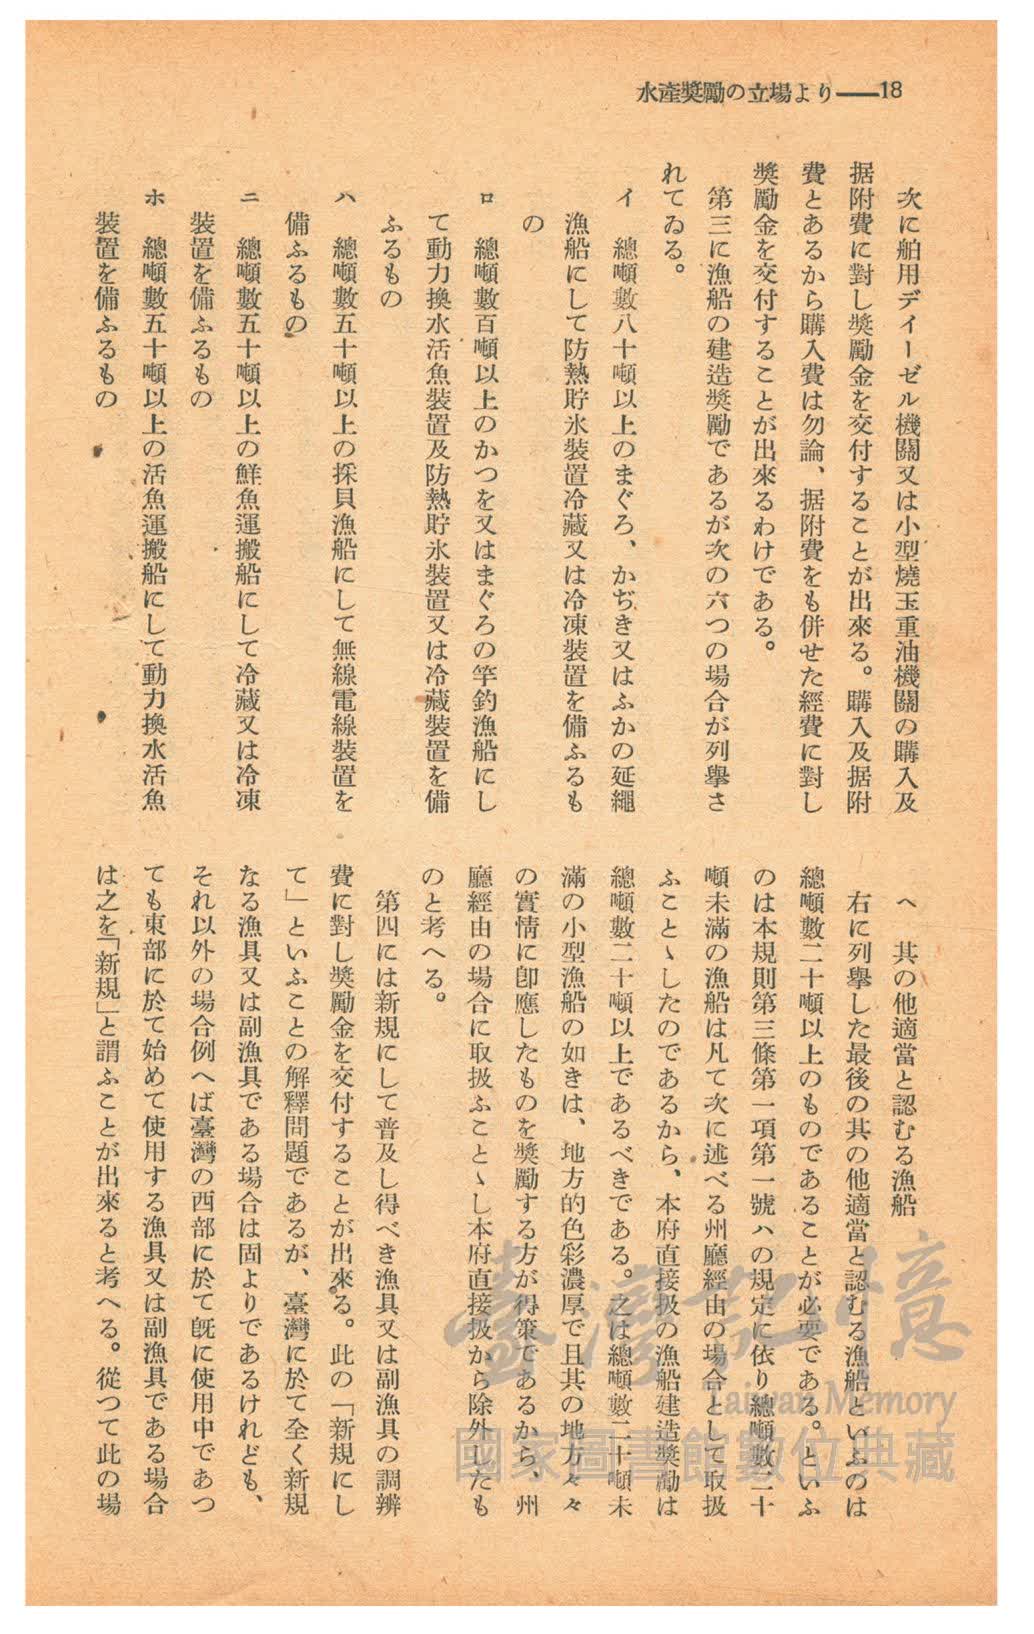 水產奬勵の立場より——18
次に舶用デイーゼル機關又は小型燒玉重油機關の購入及
据附費に對し奬勵金を交付することが出來る。購入及据附
費とあるから購入費は勿論、据附費をも併せた經費に對し
奬勵金を交付することが出來るわけである。
第三に漁船の建造奬勵であるが次の六つの場合が列擧さ
れてゐる。
イ　總噸數八十噸以上のまぐろ、かぢき又はふかの延繩
漁船にして防熱貯氷裝置冷藏又は冷凍裝置を備ふるも
の
ロ　總噸數百噸以上のかつを又はまぐろの竿釣漁船にし
て動力換水活魚裝置及防熱貯氷裝置又は冷藏裝置を備
ふるもの
ハ　總噸數五十噸以上の採貝漁船にして無線電線裝置を
備ふるもの
ニ　總噸數五十噸以上の鮮魚運搬船にして冷藏又は冷凍
裝置を備ふるもの
ホ　總噸數五十噸以上の活魚運搬船にして動力換水活魚
裝置を備ふるもの
ヘ　其の他適當と認むる漁船
右に列擧した最後の其の他適當と認むる漁船といふのは
總噸數二十噸以上のものであることが必要である。といふ
のは本規則第三條第一項第一號ハの規定に依り總噸數二十
噸未滿の漁船は凡て次に述べる州廳經由の場合として取扱
ふことゝしたのであるから、本府直接扱の漁船建造奬勵は
總噸數二十噸以上であるべきである。之は總噸數二十噸未
滿の小型漁船の如きは、地方的色彩濃厚で且其の地方々々
の實情に卽應したものを奬勵する方が得策であるから、州
廳經由の場合に取扱ふことゝし本府直接扱から除外したも
のと考へる。
第四には新規にして普及し得べき漁具又は副漁具の調辨
費に對し奬勵金を交付することが出來る。此の「新規にし
て」といふことの解釋問題であるが、臺灣に於て全く新規
なる漁具又は副漁具である場合は固よりであるけれども、
それ以外の場合例へば臺灣の西部に於て旣に使用中であつ
ても東部に於て始めて使用する漁具又は副漁具である場合
は之を「新規」と謂ふことが出來ると考へる。從つて此の場
臺灣記憶
Taiwan Memory
國家圖書館數位典藏